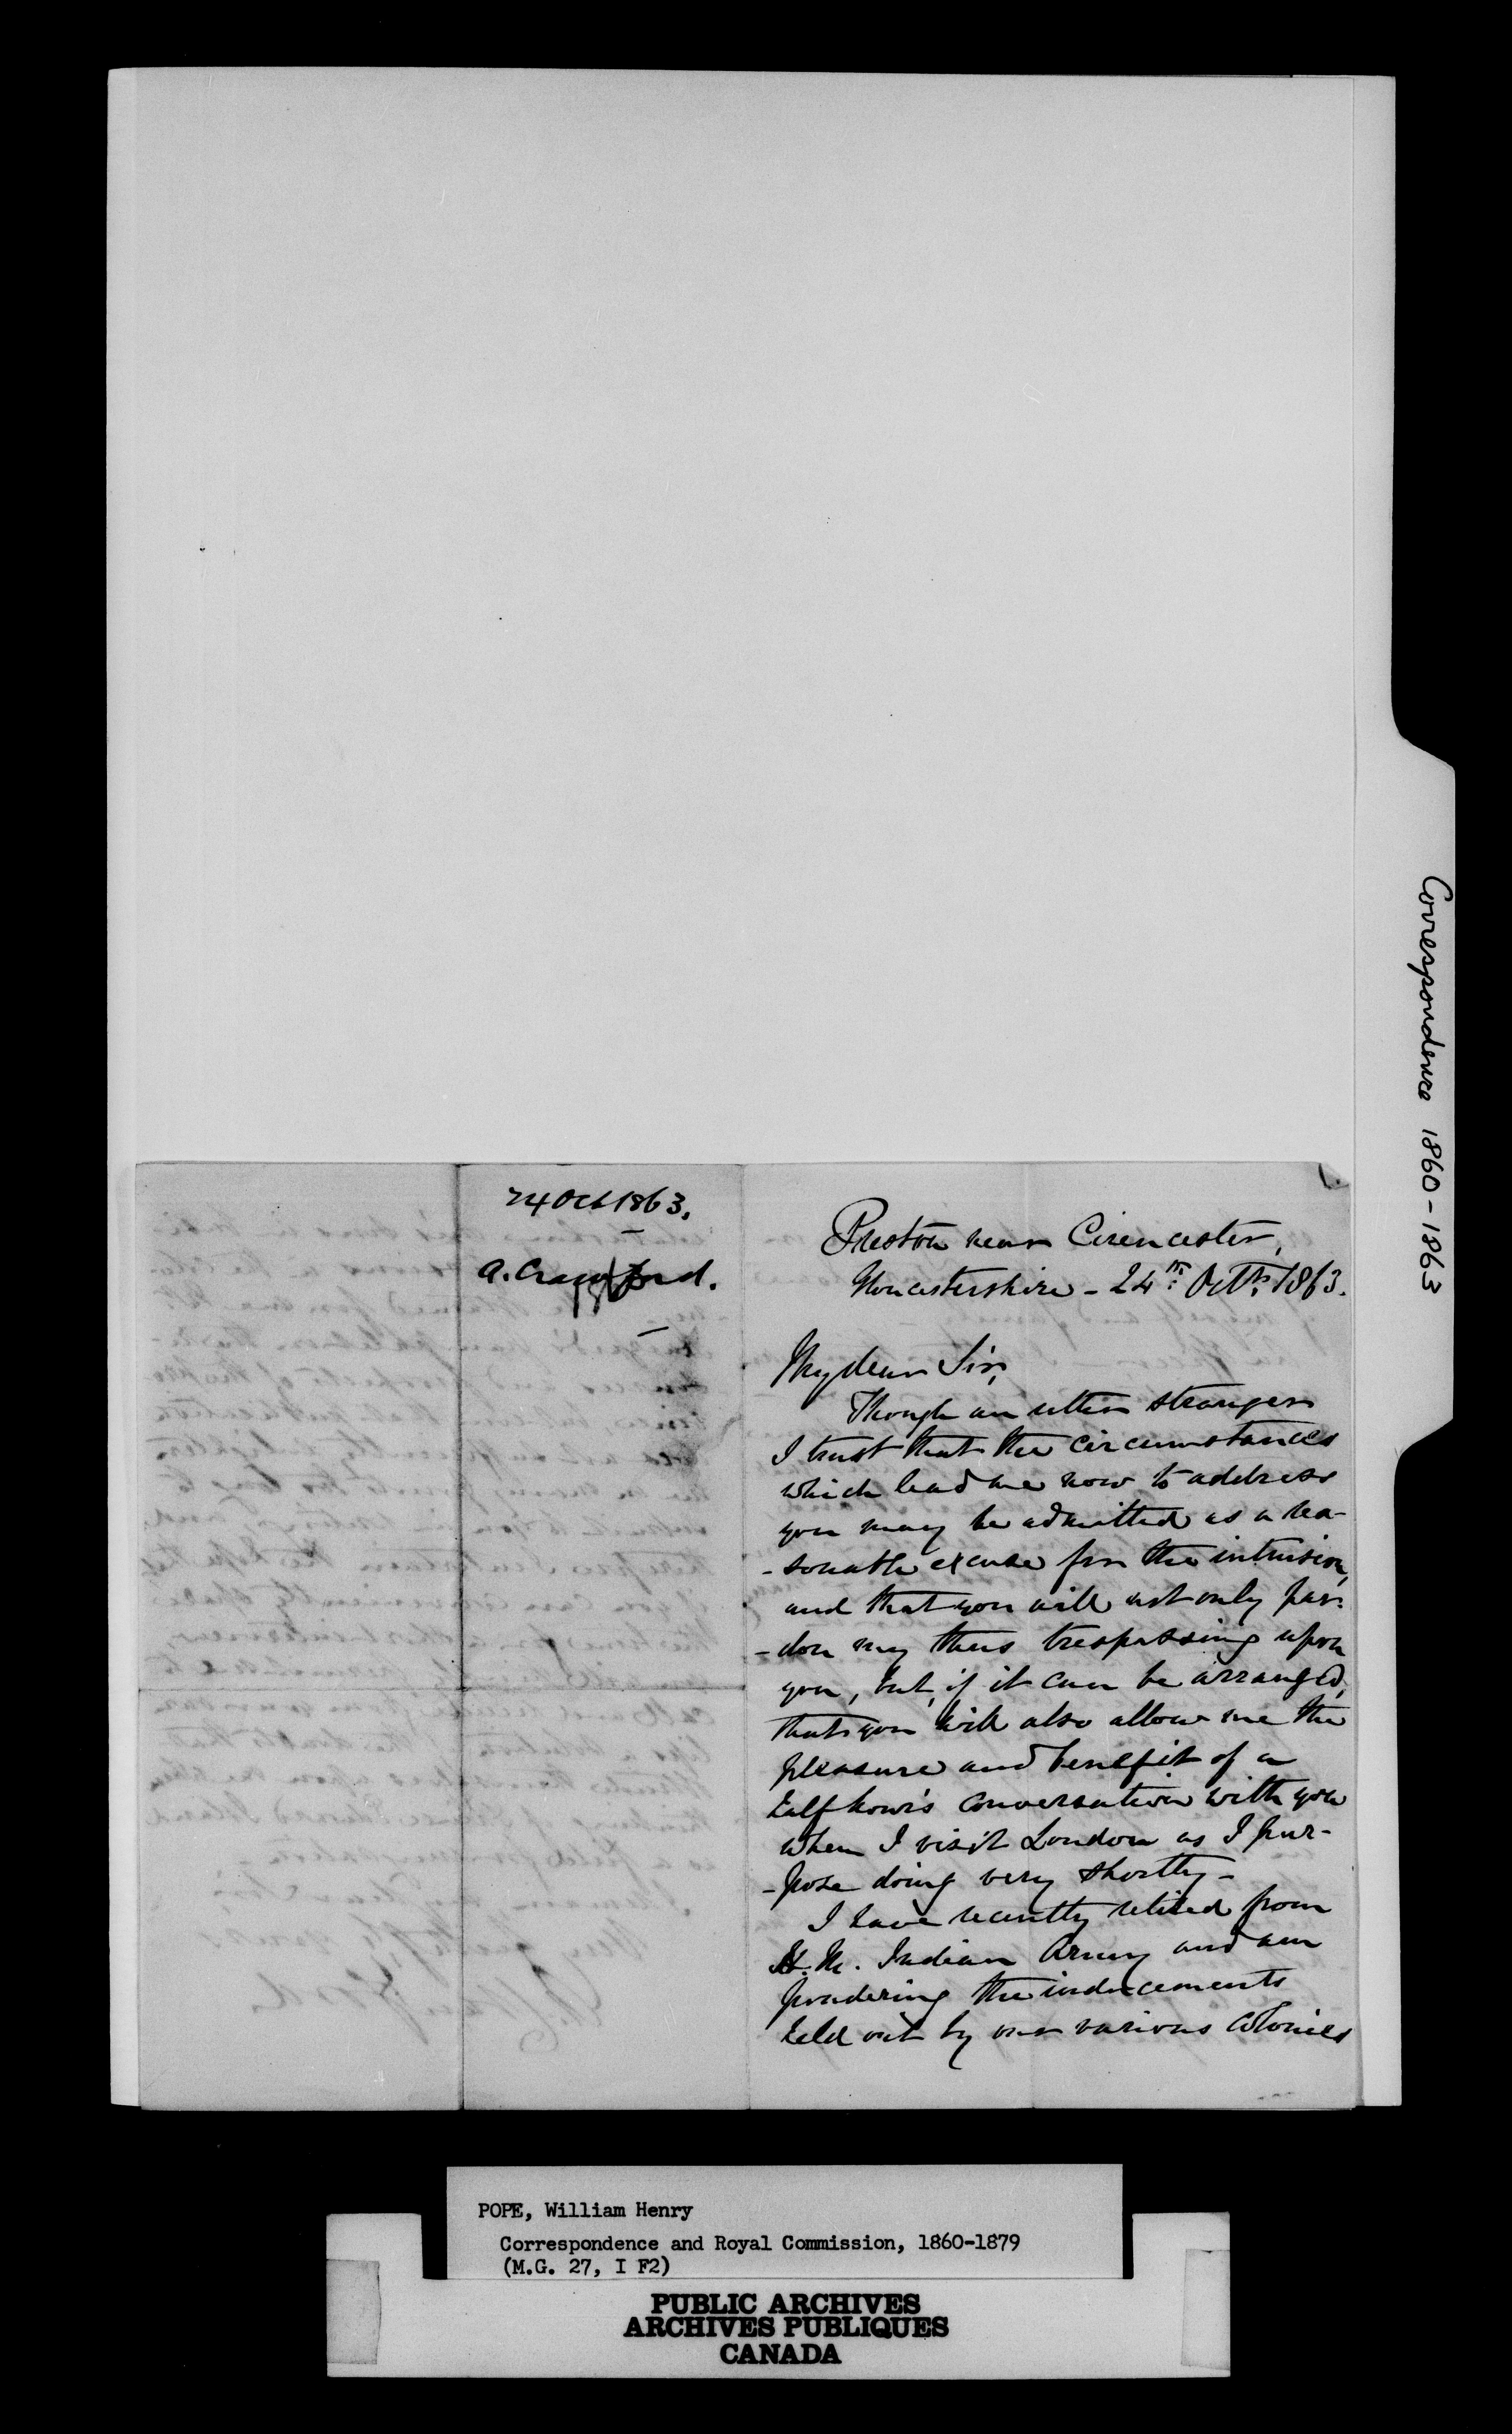 Correspondence 1860-1863
24 Oct 1863.
A. Crawford.
Preston near Cirencester,
Gloucestershire - 24th Octr. 1863.
My dear Sir,
Though an utter stranger
I trust that the circumstances
which lead me now to address
you may be admitted as a rea-
-sonable excuse for the intrusion,
and that you will not only par-
-don my thus trespassing upon
you, but, if it can be arranged,
that you will also allow me the
pleasure and benefit of a
half hour's conversation with you
when I visit London as I pur-
-pose doing very shortly -
I have recently retired from
H.M. Indian Army and am
pondering the inducements
held out by our various colonies
POPE, William Henry
Correspondence and Royal Commission, 1860-1879
(M.G. 27, I F2)
PUBLIC ARCHIVES
ARCHIVES PUBLIQUES
CANADA